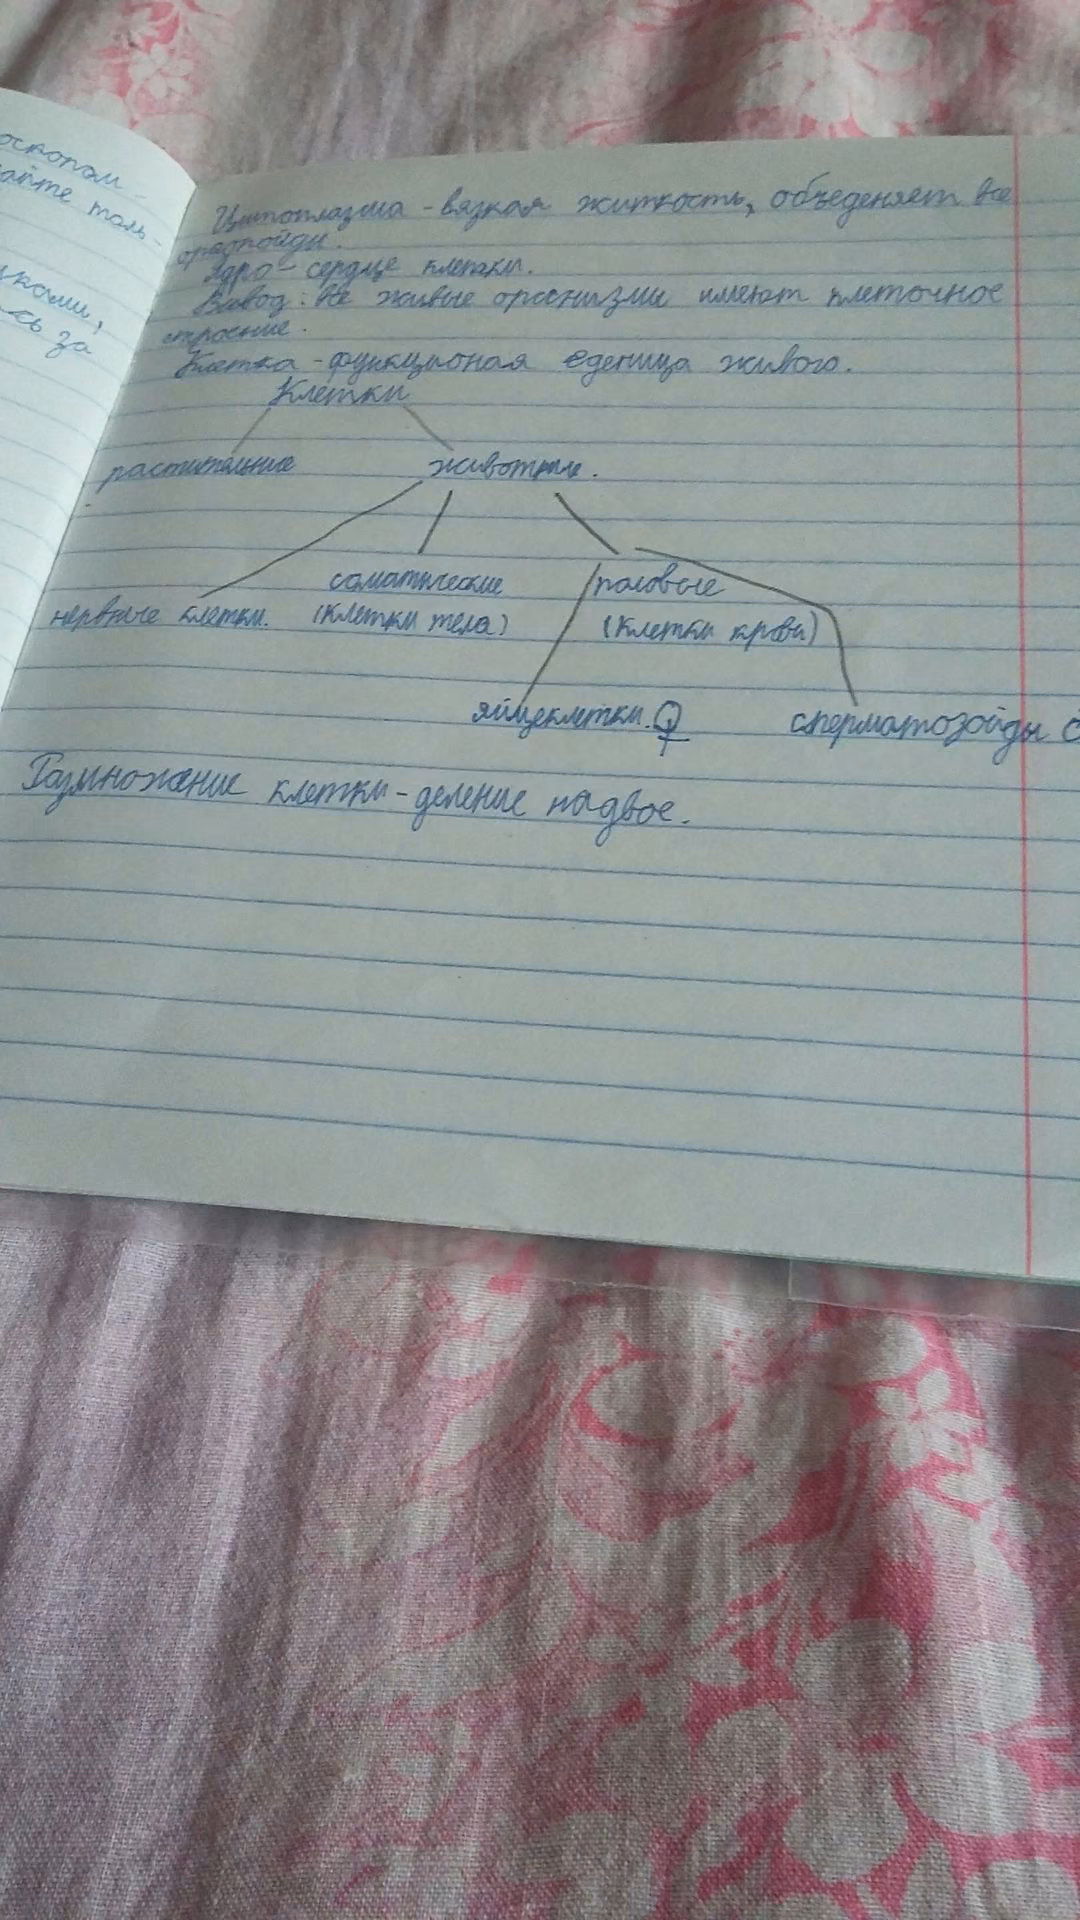 оскопом -
айте толь-
иками,
сь за
Цитоплазма - вязкая житкость, объеденяет все
органойды.
Ядро - сердце клетки.
Вывод: Все живые организмы имеют клеточное
строение.
Клетка - функционая еденица живого.
Клетки
растительные животные.
соматические половые
нервные клетки. (клетки тела) (клетки крови)
яйцеклетки. ♀ сперматозойды
Размножение клетки - деление надвое.